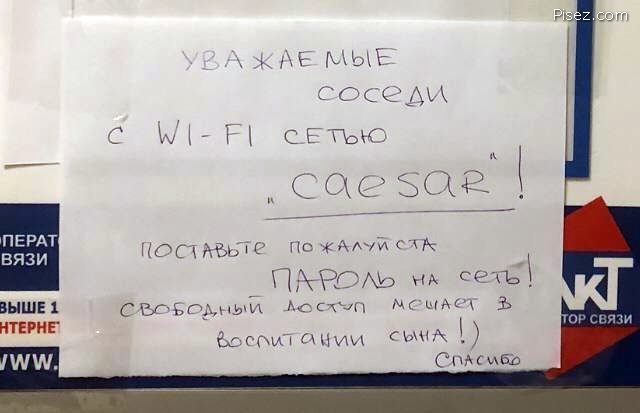 Pisez.com
УВАЖАЕМЫЕ
СОСЕДИ
С WI-FI СЕТЬЮ
„caesaR"!
ПОСТАВЬТЕ ПОЖАЛУЙСТА
ПАРОЛЬ НА СЕТЬ!
СВОБОДНЫЙ ДОСТУП МЕШАЕТ В
ВОСПИТАНИИ СЫНА!)
СПАСИБО
ОПЕРАТ
ВЯЗИ
ВЫШЕ 1
НТЕРНЕТ
WWW.
АКТ
ТОР СВЯЗИ